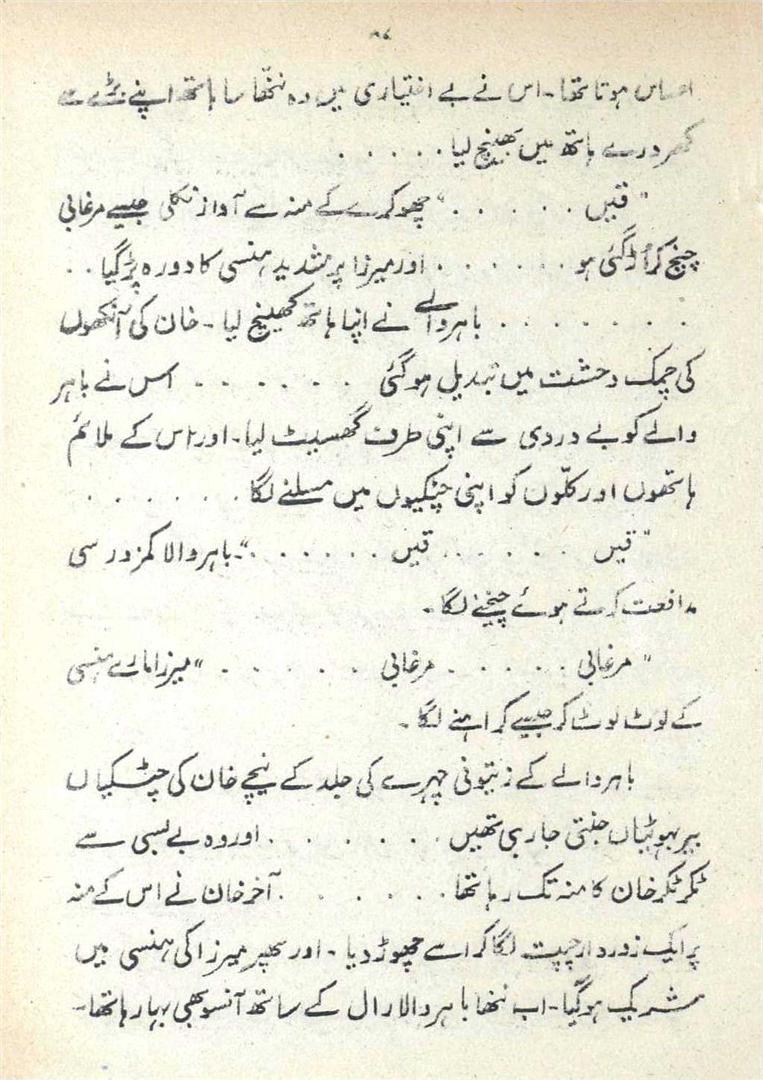 ۸۷
احساس ہوتا تھا۔ اس نے بے اختیاری میں وہ ننھّا سا ہاتھ اپنے بڑے سے
کھردرے ہاتھ میں بھینچ لیا . . . . .
" قیں . . . . . " چھوکرے کے منہ سے آواز نکلی جیسے مرغابی
چنج کر اُڑ گئی ہو . . . . . . اور میرزا پر شدید ہنسی کا دورہ پڑ گیا . .
. . . . . . . . باہر والے نے اپنا ہاتھ کھینچ لیا۔ خان کی آنکھوں
کی چمک دحشت میں تبدیل ہو گئی . . . . . . اس نے باہر
والے کو بے دردی سے اپنی طرف گھسیٹ لیا۔ اور اس کے ملائم
ہاتھوں اور کلّوں کو اپنی چٹکیوں میں مسلنے لگا . . . . . . .
" قیں . . . . . . قیں . . . . . . "۔ باہر والا کمزور سی
مدافعت کرتے ہوئے چیخنے لگا۔
" مرغابی . . . . . مرغابی . . . . . . " میرزا مارے ہنسی
کے لوٹ لوٹ کر جیسے کراہنے لگا۔
باہر والے کے زیتونی چہرے کی جلد کے نیچے خان کی چٹکیاں
بیر بہوٹیاں جنتی جا رہی تھیں . . . . . . اور وہ بے بسی سے
ٹکر ٹکر خان کا منہ تک رہا تھا . . . . . . آخر خان نے اس کے منہ
پر ایک زوردار چپت لگا کر اسے چھوڑ دیا۔ اور پھر میرزا کی ہنسی میں
شریک ہو گیا۔ اب ننھا باہر والا رال کے ساتھ آنسو بھی بہا رہا تھا۔